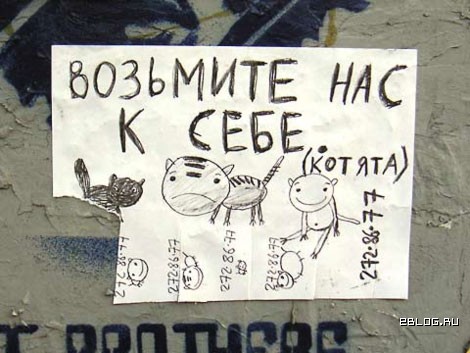 ВОЗЬМИТЕ НАС
К СЕБЕ.
(КОТЯТА)
272-86-77
272-86-77
272-86-77
272-86-77
272-86-77
2BLOG.RU
T BROTHERS